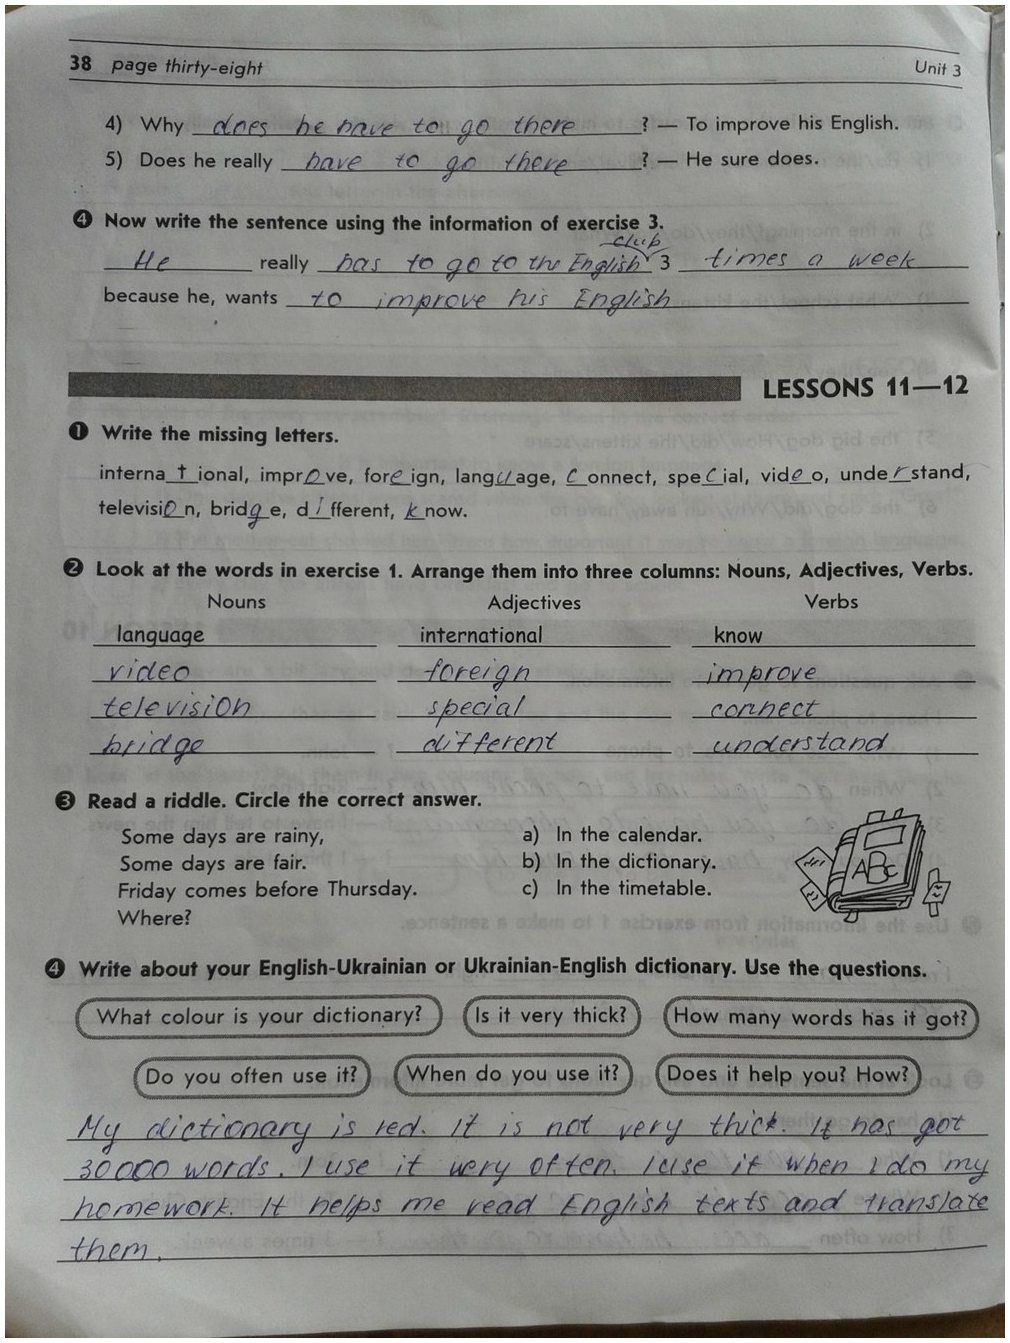 38 page thirty-eight Unit 3
4) Why does he have to go there ? — To improve his English.
5) Does he really have to go there ? — He sure does.
4 Now write the sentence using the information of exercise 3.
club
He really has to go to the English 3 times a week
because he, wants to improve his English
LESSONS 11—12
1 Write the missing letters.
international, improve, foreign, language, connect, special, video, understand,
television, bridge, different, know.
2 Look at the words in exercise 1. Arrange them into three columns: Nouns, Adjectives, Verbs.
Nouns Adjectives Verbs
language international know
video foreign improve
television special connect
bridge different understand
3 Read a riddle. Circle the correct answer.
Some days are rainy, a) In the calendar.
Some days are fair. b) In the dictionary.
Friday comes before Thursday. c) In the timetable.
Where?
ABc
4 Write about your English-Ukrainian or Ukrainian-English dictionary. Use the questions.
What colour is your dictionary? Is it very thick? How many words has it got?
Do you often use it? When do you use it? Does it help you? How?
My dictionary is red. It is not very thick. It has got
30000 words. I use it very often. I use it when I do my
homework. It helps me read English texts and translate
them.